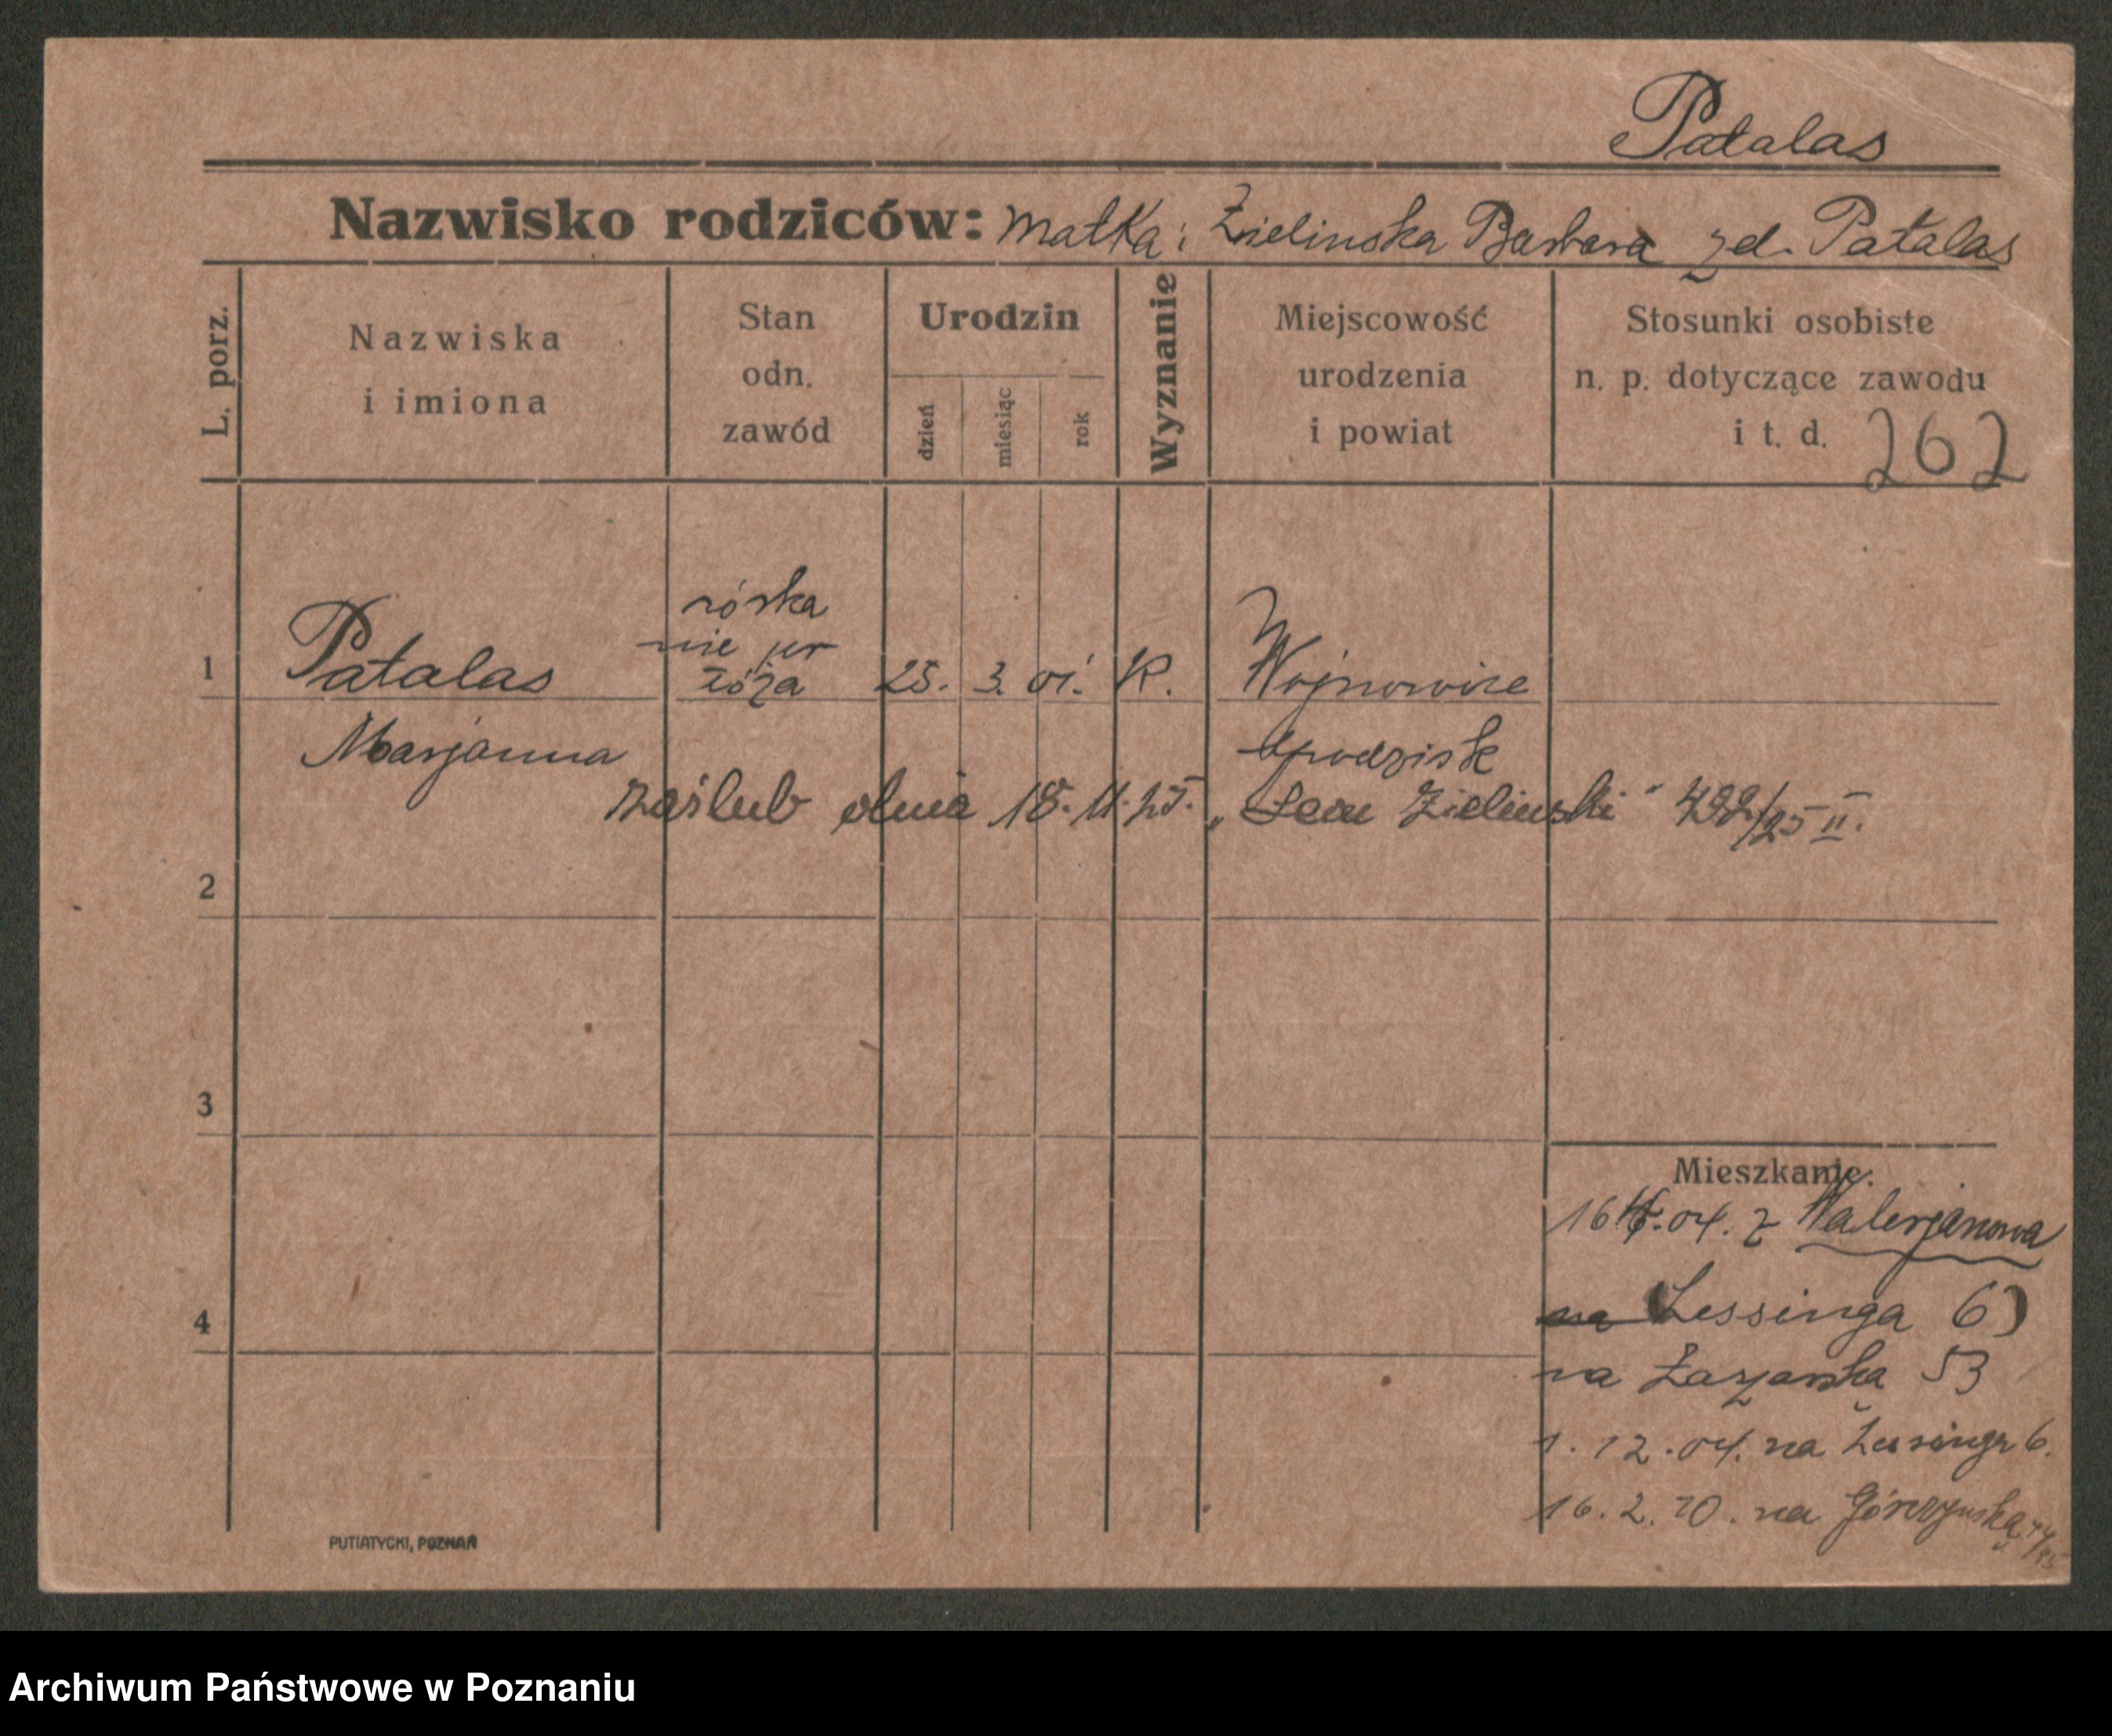 Patalas
Nazwisko rodziców: matka: Zielinska Barbara zd. Patalas
L. porz.
Nazwiska
i imiona
Stan
odn.
zawód
Urodzin
dzień
miesiąc
rok
Wyznanie
Miejscowość
urodzenia
i powiat
Stosunki osobiste
n. p. dotyczące zawodu
i t. d.
262
1
Patalas
Marjanna
córka
nie
25. 3. 01. K.
Wojnowice
Grodzisk
zaślub dnia 18. 11. 25. „Leon Zielinski" 492/25 II.
2
3
4
Mieszkanie:
04. z Walerjanowa
na Lessinga 6)
na Łazarska 53
1. 12. 04. na Lessinga 6.
16. 2. 20. na Górczyńską
PUTIATYCKI, POZNAŃ
Archiwum Państwowe w Poznaniu